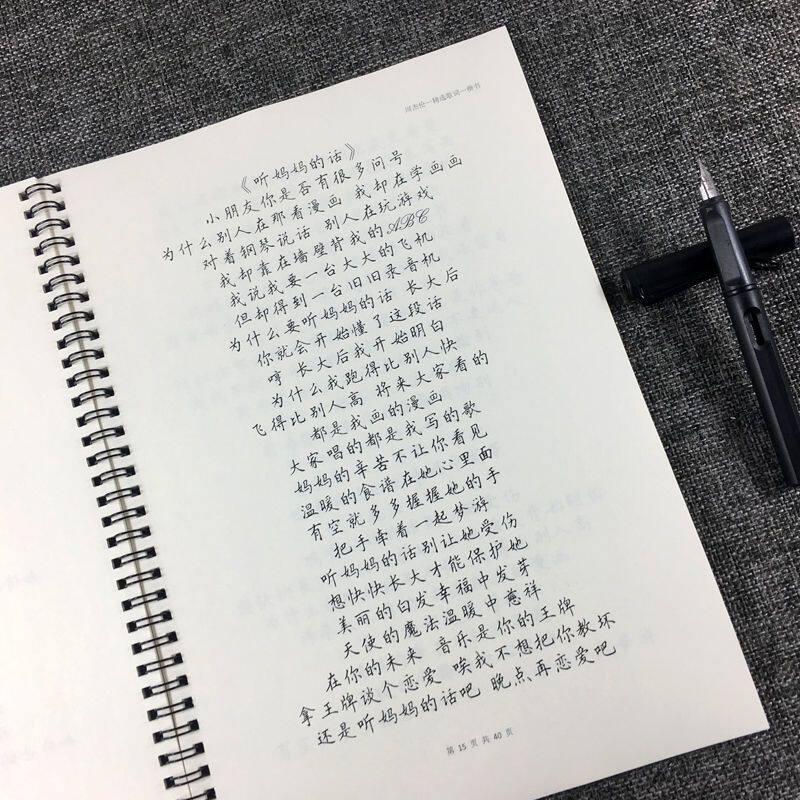 周杰伦一精选歌词一楷书
《听妈妈的话》
小朋友你是否有很多问号
为什么别人在那看漫画 我却在学画画
对着钢琴说话 别人在玩游戏
我却靠在墙壁背我的ABC
我说我要一台大大的飞机
但却得到一台旧旧录音机
为什么要听妈妈的话 长大后
你就会开始懂了这段话
哼 长大后我开始明白
为什么我跑得比别人快
飞得比别人高 将来大家看的
都是我画的漫画
大家唱的都是我写的歌
妈妈的辛苦不让你看见
温暖的食谱在她心里面
有空就多多握握她的手
把手牵着一起梦游
听妈妈的话别让她受伤
想快快长大才能保护她
美丽的白发幸福中发芽
天使的魔法温暖中慈祥
在你的未来 音乐是你的王牌
拿王牌谈个恋爱 唉我不想把你教坏
还是听妈妈的话吧 晚点再恋爱吧
第 15 页 共 40 页